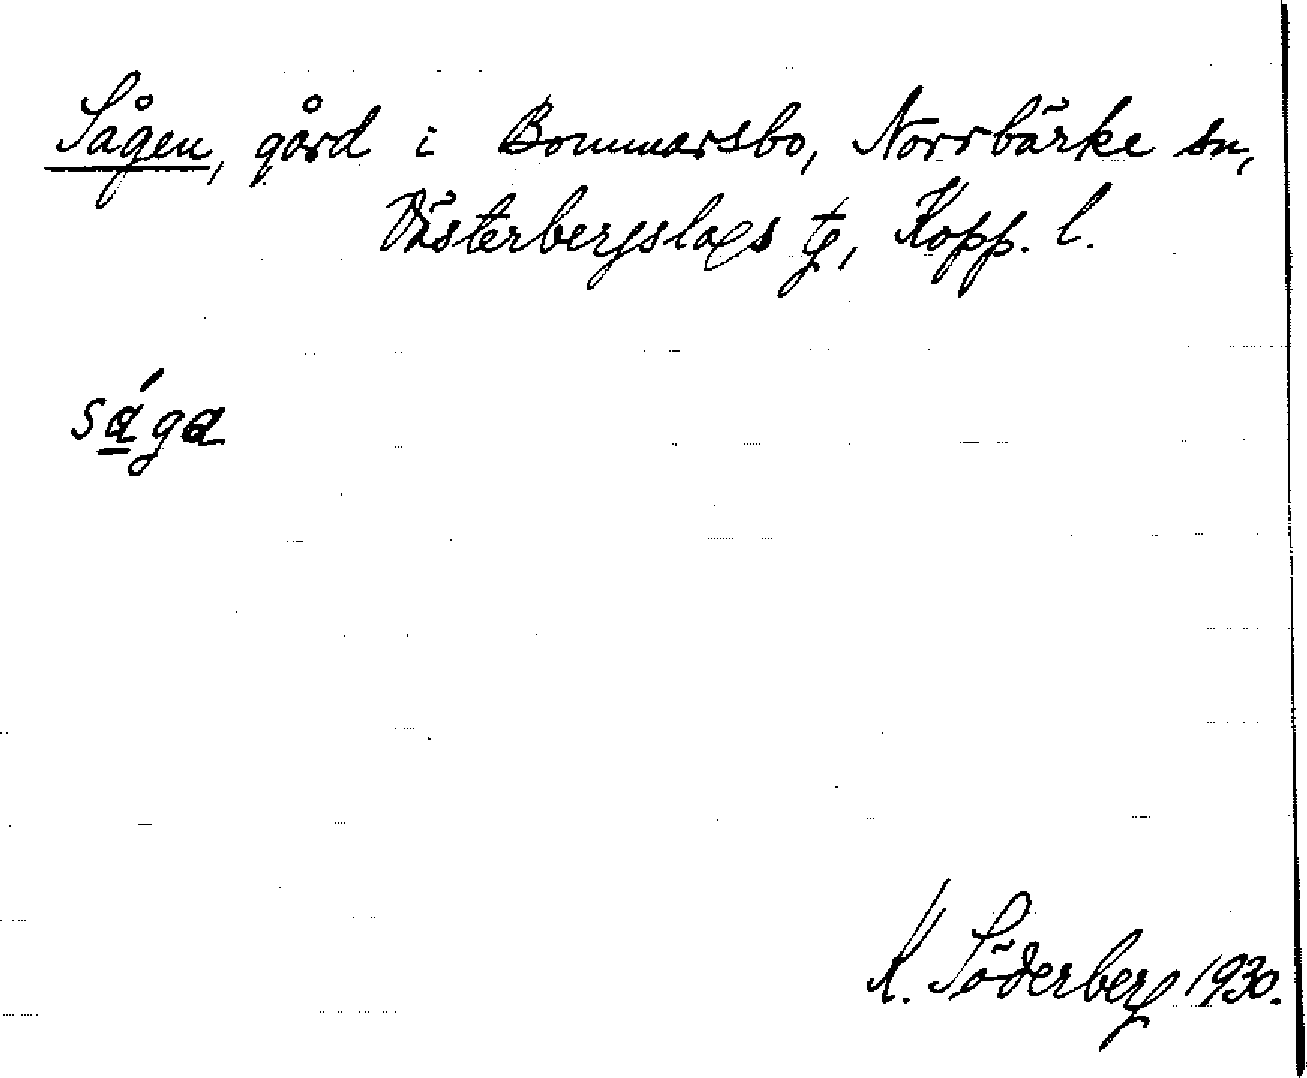 Sågen, gård i Bommarsbo, Norrbärke sn,
Västerbergslags tg, Kopp. l.
sá̱ga
K. Söderberg 1930.